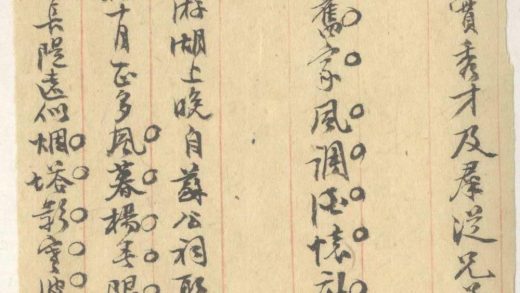 秀才及羣從兄
舊家風調懷
游湖上晚自蘇公祠
十月正多風暮楊眼
長隄遠似烟塔影波